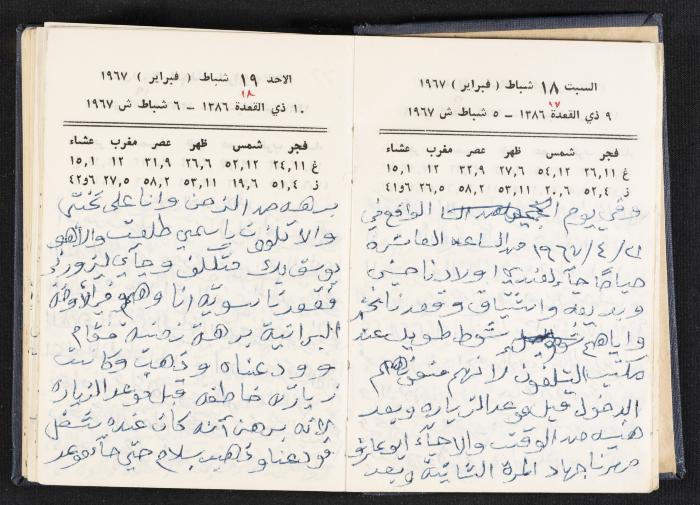 السبت ١٨ شباط ( فبراير ) ١٩٦٧
١٧
٩ ذي القعدة ١٣٨٦ – ٥ شباط ش ١٩٦٧
فجر شمس ظهر عصر مغرب عشاء
غ ٢٦,١١ ٥٤,١٢ ٢٧,٦ ٣٢,٩ ١٢ ١٥,١
ز ٥٢,٤ ٢٠,٦ ٥٣,١١ ٥٨,٢ ٢٦,٥ ٤١و٦
وفي يوم الواقع في
٢١/٤/١٩٦٧ من الساعه العاشرة
صباحًا جآء اولادنا حسني
وبديعه واشتياق وقعدنا نحن
واياهم شوط طويل عند
مكتب التلفون لانهم منعوهم
الدخول قبل موعد الزياره وبعد
من الوقت والا جآء ابو عائد
جهاد المرة الثانية وبعد
الاحد ١٩ شباط ( فبراير ) ١٩٦٧
١٨
١٠ ذي القعدة ١٣٨٦ – ٦ شباط ش ١٩٦٧
فجر شمس ظهر عصر مغرب عشاء
غ ٢٤,١١ ٥٢,١٢ ٢٦,٦ ٣١,٩ ١٢ ١٥,١
ز ٥١,٤ ١٩,٦ ٥٣,١١ ٥٨,٢ ٢٧,٥ ٤٢و٦
برهه من الزمن وانا على تختي
والا تلفون باسمي طلعت والا هو
يوسف بك متكلف وجآي ليزورني
فقعدنا سويّة انا وهو في الاوضة
البرانية برهة زمنية فقام
وودعناه وذهب وكانت
زيارته خاطفه قبل موعد الزياره
لانه برهن آنه كان عنده شغل
فودعنا وذهب بسلام حتى جآء موعد